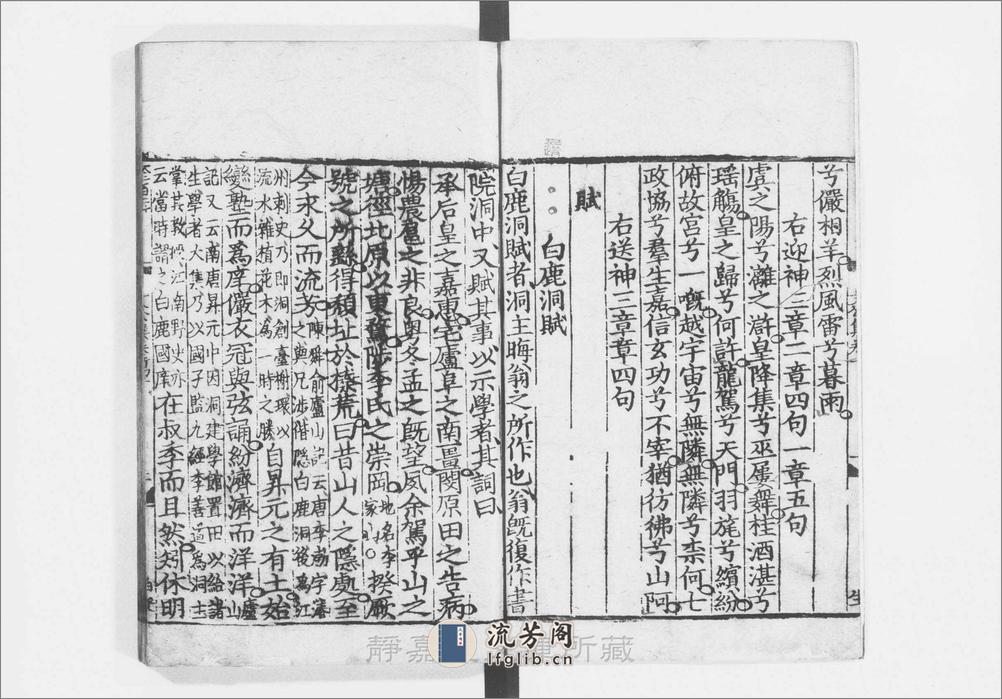 兮儼相羊烈風雷兮暮雨
右迎神三章二章四句一章五句
虞之陽兮灕之滸皇降集兮巫屢舞桂酒湛兮
瑤觴皇之歸兮何許龍駕兮天門羽旄兮繽紛
俯故宮兮一慨越宇宙兮無隣無隣兮柰何七
政協兮羣生嘉信玄功兮不宰猶彷彿兮山阿
右送神三章章四句
賦
白鹿洞賦
白鹿洞賦者洞主晦翁之所作也翁旣復作書
院洞中又賦其事以示學者其詞曰
承后皇之嘉惠宅廬阜之南畺閔原田之告病
惕農扈之非良粤冬孟之旣望夙余駕乎山之
塘徑北原以東騖陟李氏之崇岡
地名李
家山
揆厥
號之所繇得頹址於榛荒曰昔山人之隱處至
今永久而流芳
陳舜俞廬山記云唐李渤字濬
之與兄涉偕隱白鹿洞後爲江
州刺史乃即洞創臺榭環以
流水雜植花木爲一時之勝
自昇元之有土始
變塾而爲庠儼衣冠與弦誦紛濟濟而洋洋
廬山
記又云南唐昇元中因洞建學館置田以給諸
生學者大集乃以國子監九經李善道爲洞主
掌其敎授江南野史亦
云當時謂之白鹿國庠
在叔季而且然矧休明
靜嘉堂文庫所藏
流芳阁
lfglib.cn